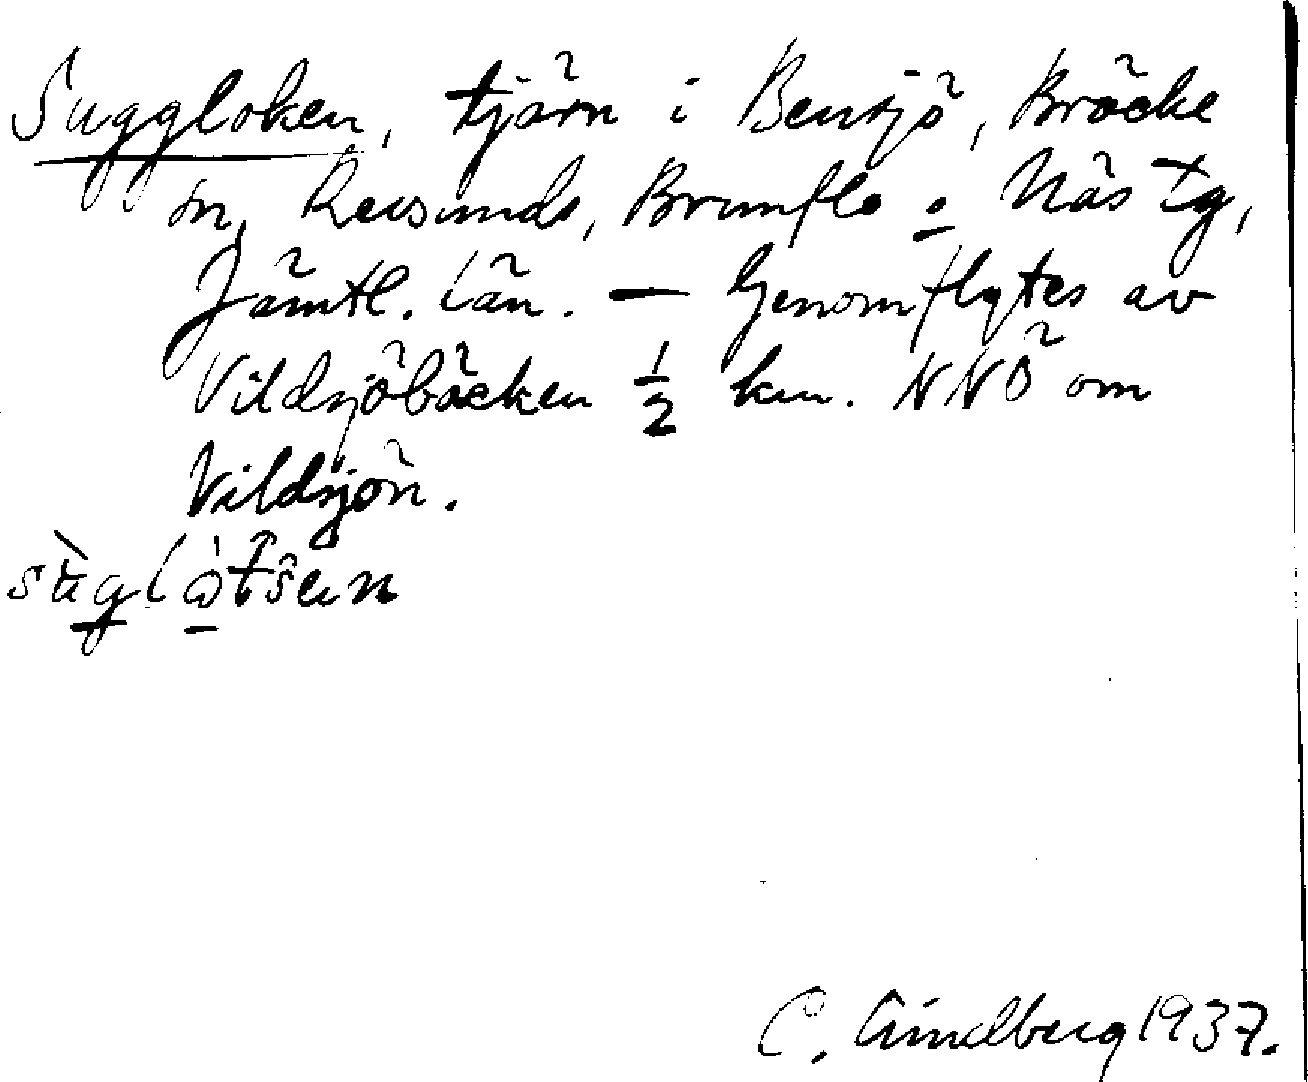 Suggloken, tjärn i Bensjö, Bräcke
sn, Revsunds, Brunflo o Näs tg,
Jämtl. län. — Genomflytes av
Vildsjöbäcken 1/2 km. NNÖ om
Vildsjön.
C. Lindberg 1937.